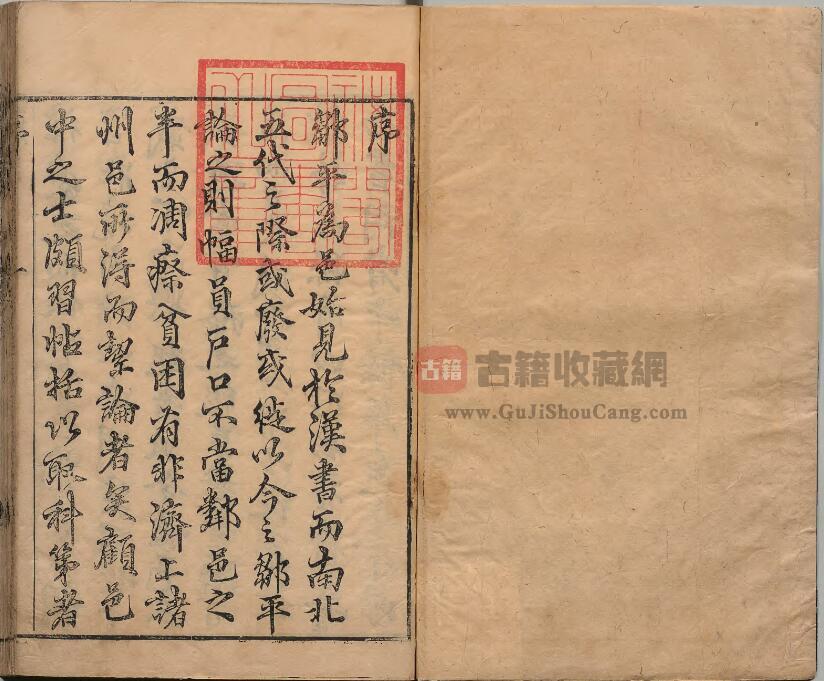 序
鄒平為邑始見於漢書而南北
五代之際或廢或徙以今之鄒平
論之則幅員戶口不當鄰邑之
半而凋瘵貧困有非濟上諸
州邑所得而絜論者矣顧邑
中之士頗習帖括以取科第者
序
一
古籍
古籍收藏網
www.GuJiShouCang.com